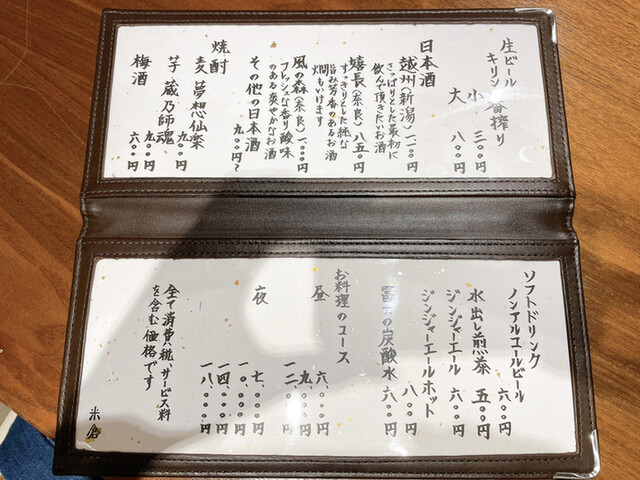 生ビール
キリン一番搾り
小 三〇〇円
大 八〇〇円
日本酒
越州(新潟)一一〇〇円
さっぱりとした最初に
飲んで頂きたいお酒
嬉長(奈良)八五〇円
すっきりとした純な
旨み芳香のあるお酒
燗もいけます
風の森(奈良)一、〇〇〇円
フレッシュな香り酸味
のある爽やかなお酒
その他の日本酒
九〇〇円〜
焼酎
麦 夢想仙楽 九〇〇円
芋 蔵乃師魂 九〇〇円
梅酒 六〇〇円
ソフトドリンク
ノンアルコールビール 六〇〇円
水出し煎茶 五〇〇円
ジンジャーエール 六〇〇円
ジンジャーエールホット 八〇〇円
富士の炭酸水 六〇〇円
お料理のコース
昼 六、〇〇〇円
九、〇〇〇円
一二、〇〇〇円
夜 七、〇〇〇円
一〇、〇〇〇円
一四、〇〇〇円
一八、〇〇〇円
全て消費税、サービス料
を含む価格です
米倉